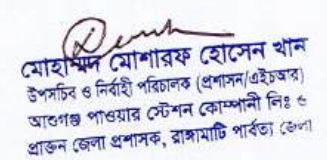 মোহাম্মদ মোশারফ হোসেন খান
উপসচিব ও নির্বাহী পরিচালক (প্রশাসন/এইচআর)
আশুগঞ্জ পাওয়ার স্টেশন কোম্পানী লিঃ ও
প্রাক্তন জেলা প্রশাসক, রাঙ্গামাটি পার্বত্য জেলা